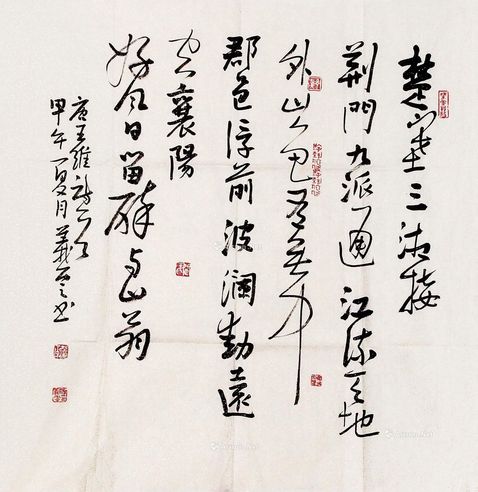 楚塞三湘接
荊門九派通江流天地
外山色有無中
郡邑浮前波瀾動遠
空襄陽
好风日留醉与山翁
唐王維詩
甲午夏月義书